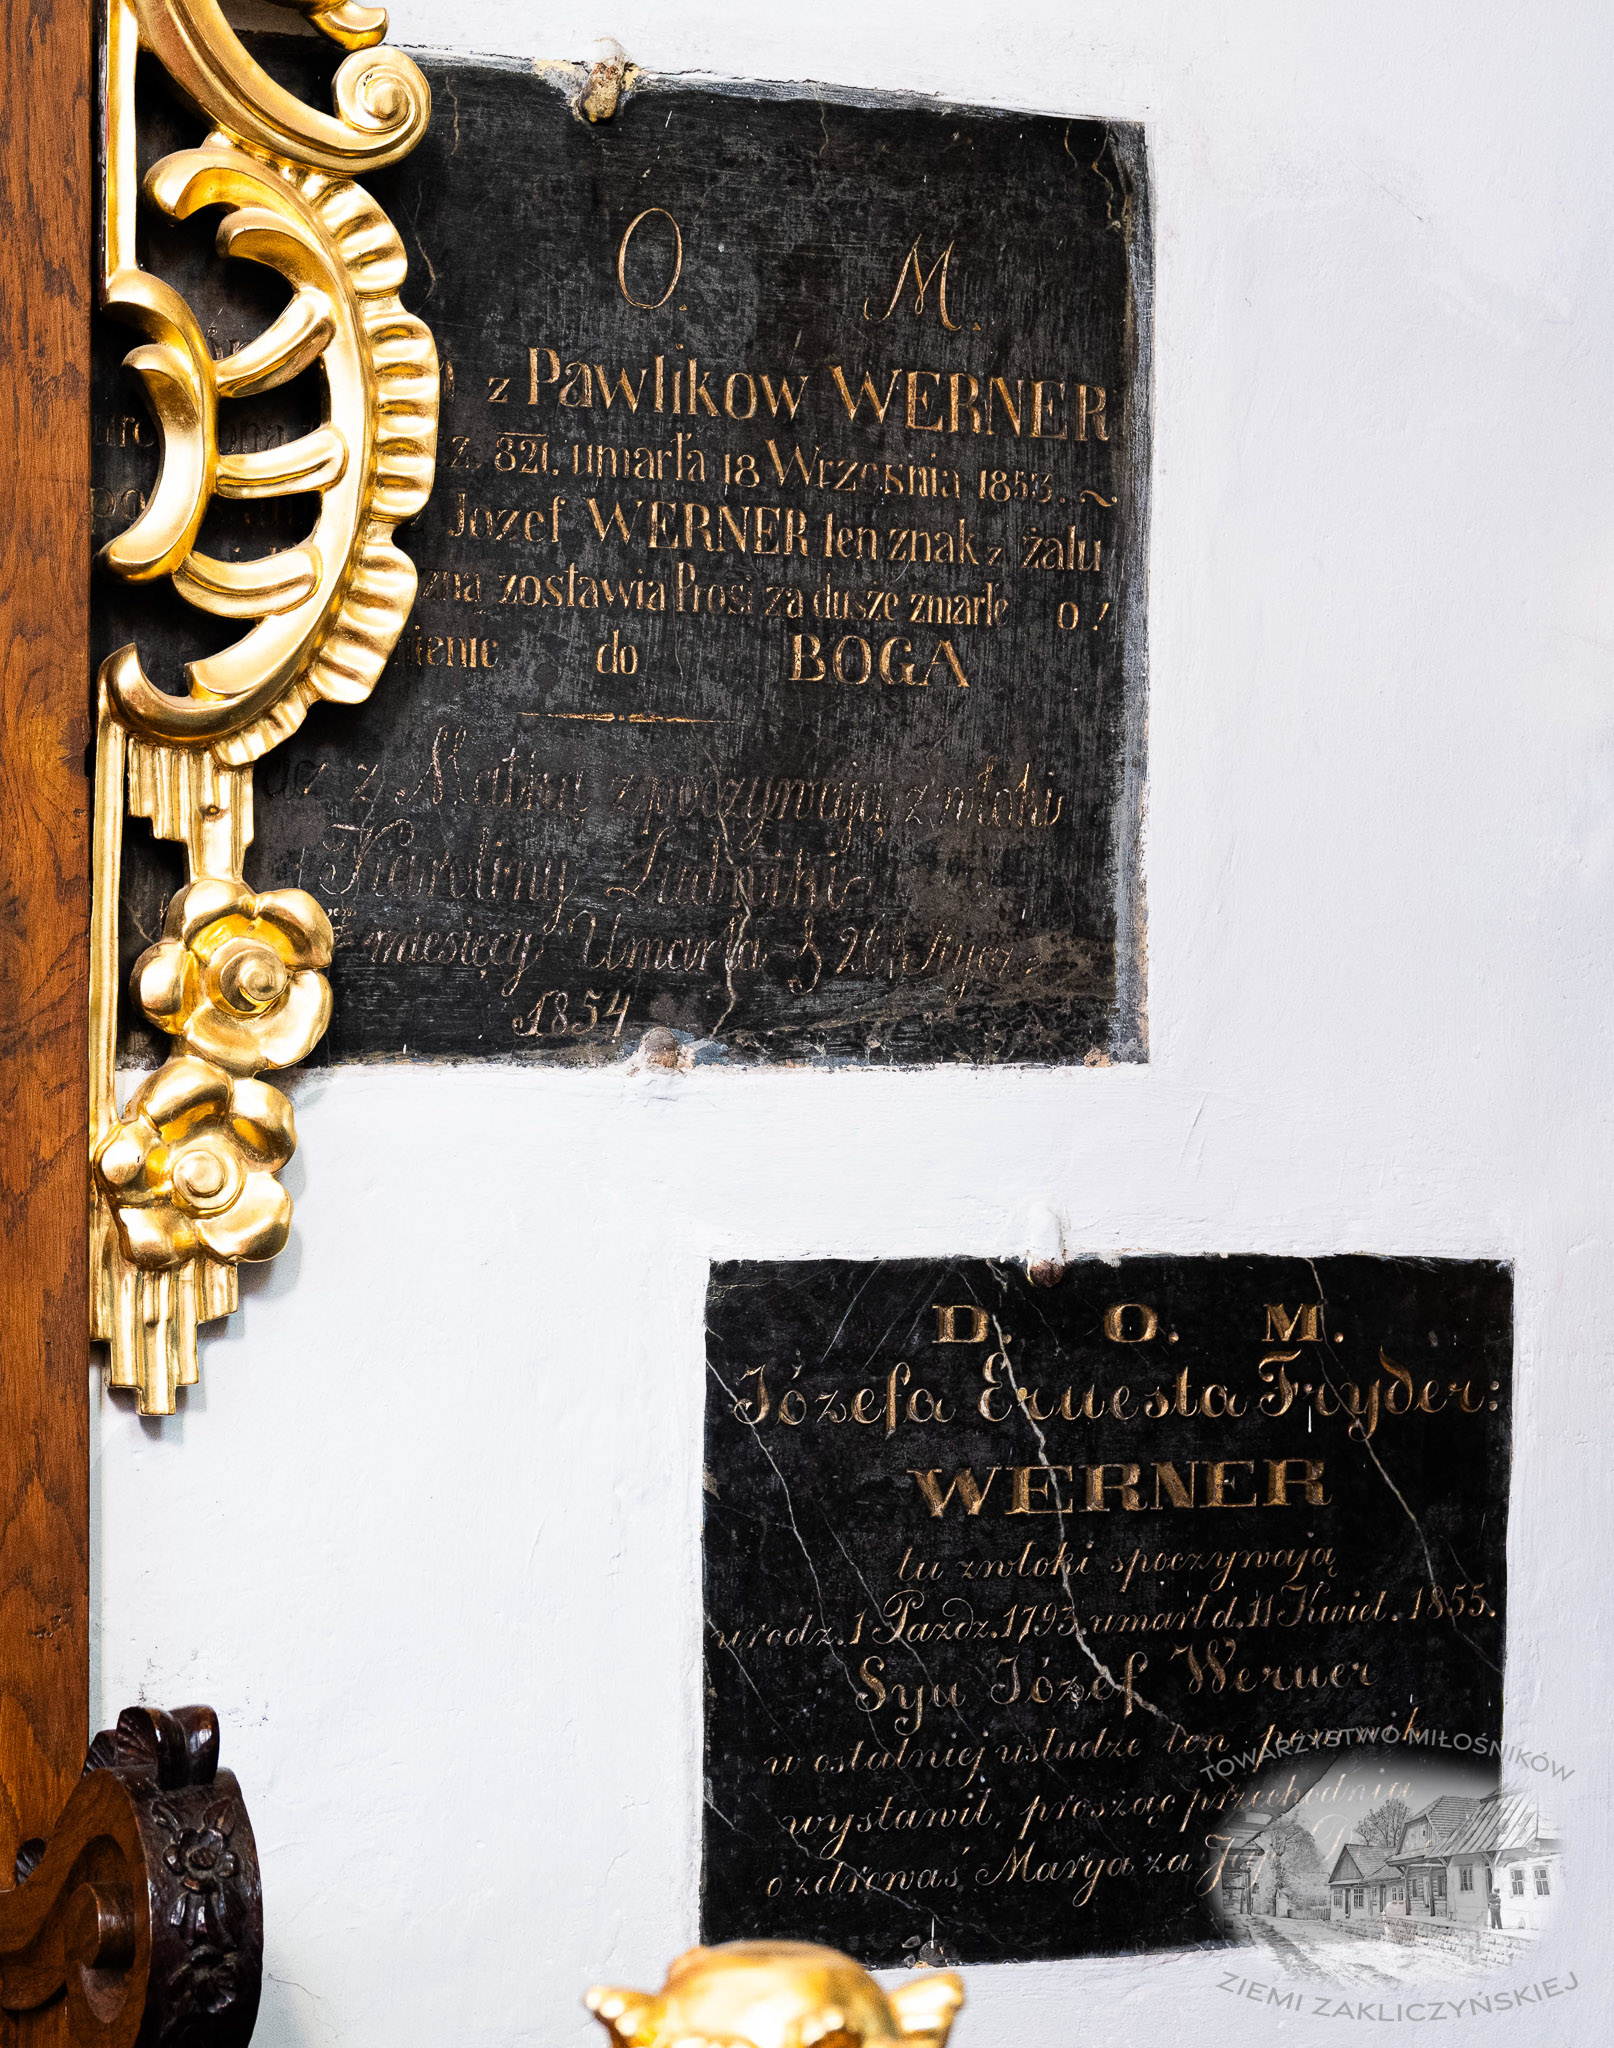 O. M.
z Pawlikow WERNER
z. 821. umarła 18 Września 1853. ~
Jozef WERNER ten znak z żalu
zną zostawia Prosi za dusze zmarłe o!
nienie do BOGA
z Matką zpoczywają zwłoki
Karoliny Ludwiki
miesięcy Umarła
1854
D. O. M.
Józefa Ernesta Fryder:
WERNER
tu zwłoki spoczywają
urodz. 1 Pazdz. 1793. umarł d. 11 Kwiet. 1855.
Syn Józef Werner
w ostatniej usłudze ten pomnik
wystawił, prosząc przechodnia
o zdrowaś Marya za Jego
TOWARZYSTWO MIŁOŚNIKÓW
ZIEMI ZAKLICZYŃSKIEJ